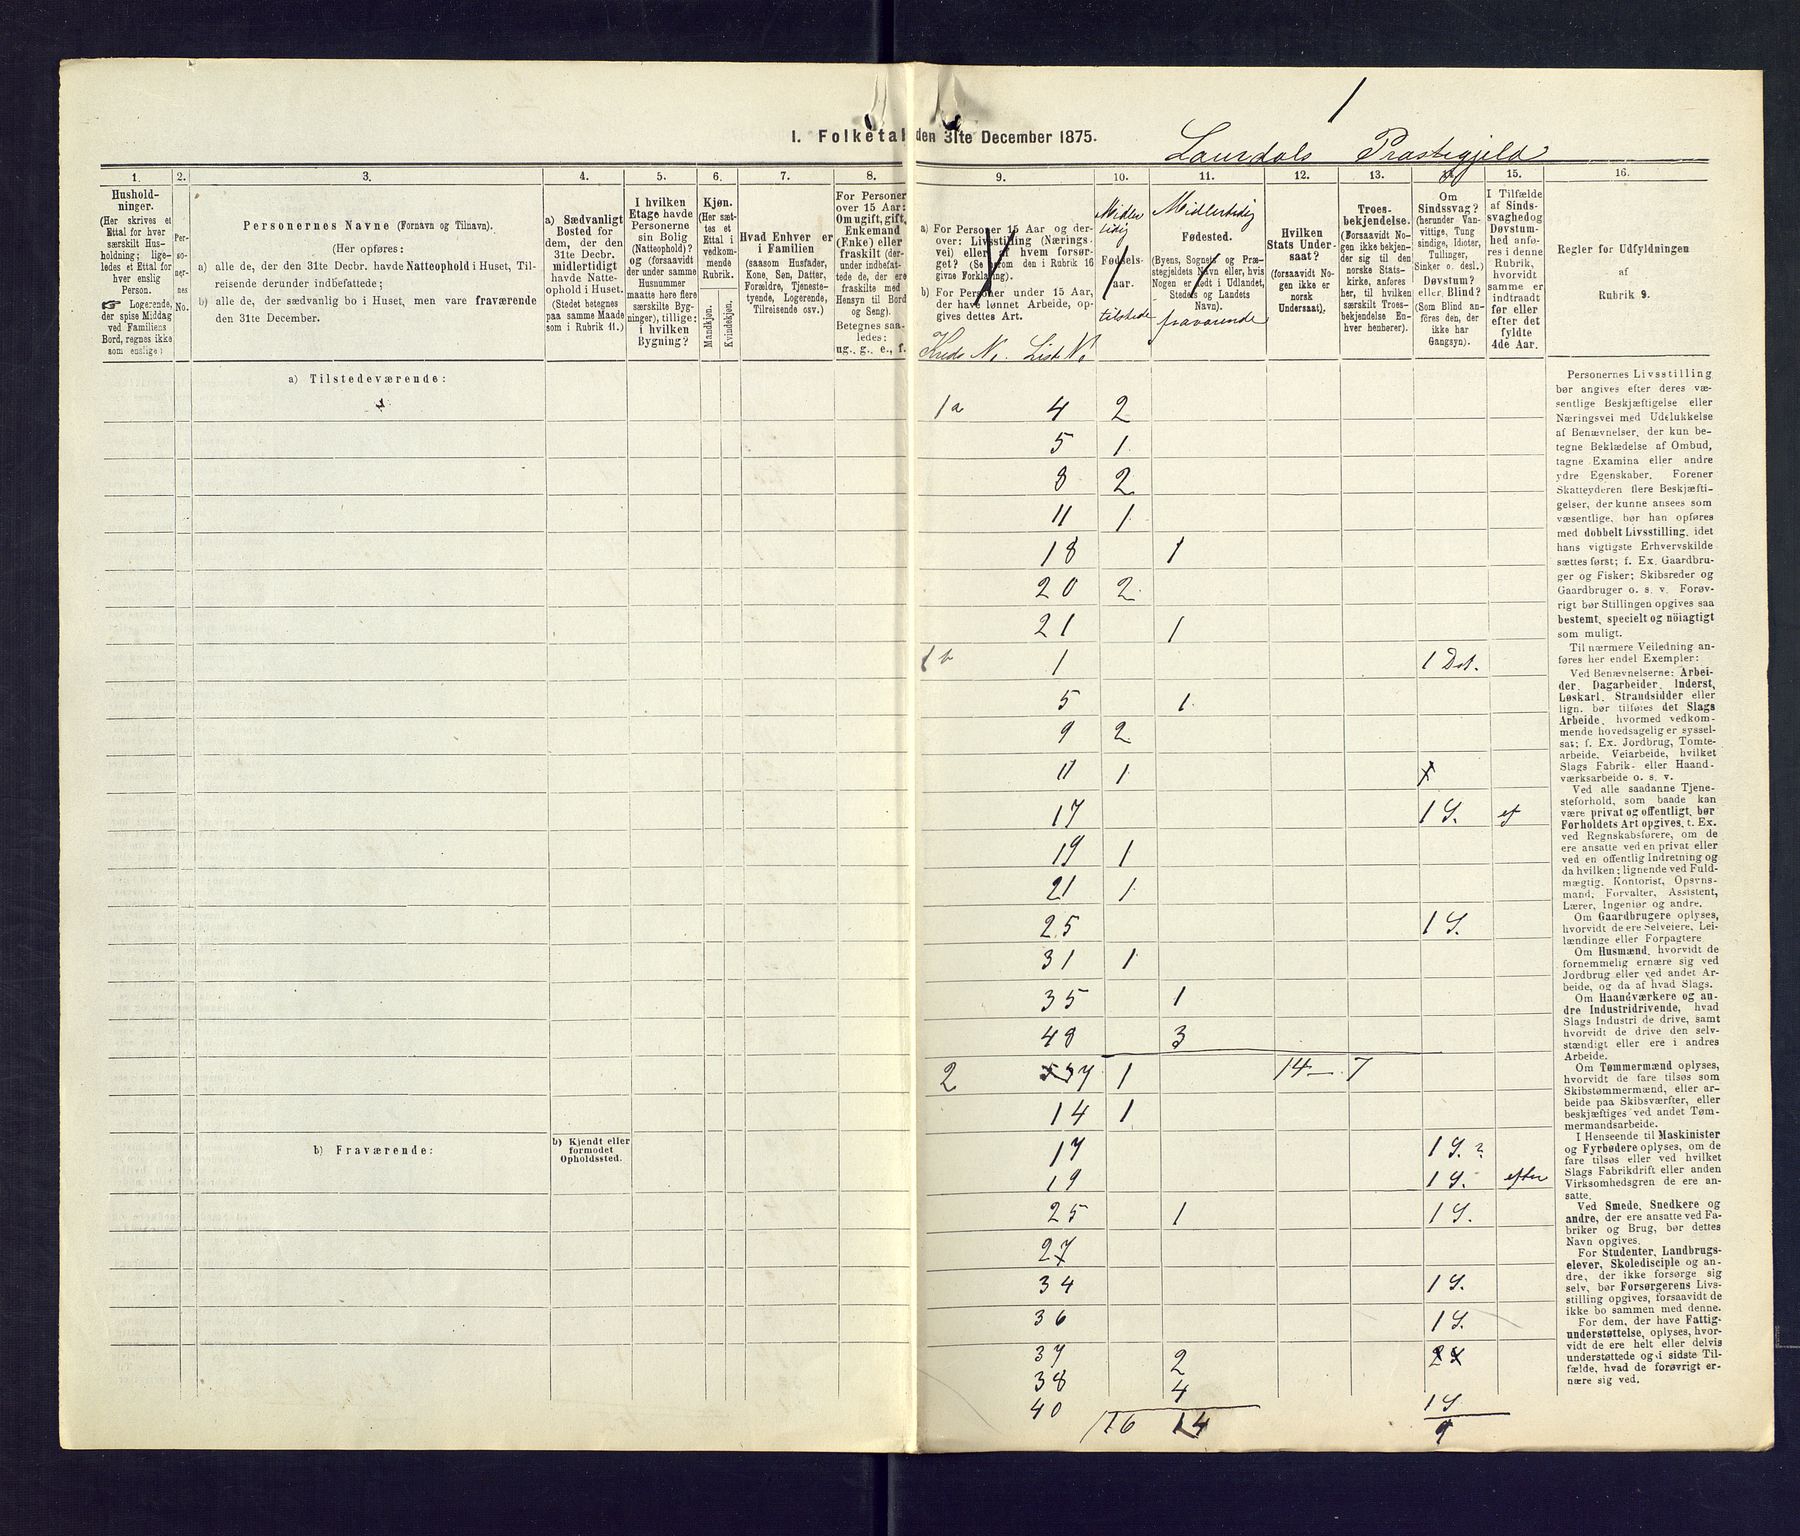 1
I. Folketal den 31te December 1875.
Laurdals Præstegjeld
1. 2. 3. 4. 5. 6. 7. 8. 9. 10. 11. 12. 13. 15. 16.
Hushold-
ninger.
(Her skrives et
Ettal for hver
særskilt Hus-
holdning; lige-
ledes et Ettal for
hver enslig
Person.
☞ Logerende,
der spise Middag
ved Familiens
Bord, regnes ikke
som enslige.)
Per-
so-
ner-
nes
No.
Personernes Navne (Fornavn og Tilnavn).
(Her opføres:
a) alle de, der den 31te Decbr. havde Natteophold i Huset, Til-
reisende derunder indbefattede;
b) alle de, der sædvanlig bo i Huset, men vare fraværende
den 31te December.
a) Sædvanligt
Bosted for
dem, der den
31te Decbr.
midlertidigt
havde Natte-
ophold i Huset.
(Stedet betegnes
paa samme Maade
som i Rubrik 11.)
I hvilken
Etage havde
Personerne
sin Bolig
(Natteophold)?
og (forsaavidt
der under samme
Husnummer
maatte høre flere
særskilte Byg-
ninger), tillige:
i hvilken
Bygning?
Kjøn.
(Her sæt-
tes et
Ettal i
vedkom-
mende
Rubrik.
Mandkjøn.
Kvindekjøn.
Hvad Enhver er
i Familien
(saasom Husfader,
Kone, Søn, Datter,
Forældre, Tjeneste-
tyende, Logerende,
Tilreisende osv.)
For Personer
over 15 Aar:
Om ugift, gift,
Enkemand
(Enke) eller
fraskilt (der-
under indbefat-
tede de, der ere
fraskilte med
Hensyn til Bord
og Seng).
Betegnes saa-
ledes:
ug., g., e., f.
a) For Personer 15 Aar og der-
over: Livsstilling (Nærings-
vei) eller af hvem forsør-
get? (Se herom den i Rubrik 16
givne Forklaring).
b) For Personer under 15 Aar,
der have lønnet Arbeide, op-
gives dettes Art.
Kreds No. Liste No
Midler
tidig
Fødsels-
aar.
tilstede
Midlertidig
Fødested.
(Byens, Sognets og Præ-
stegjeldets Navn eller, hvis
Nogen er født i Udlandet,
Stedets og Landets
Navn).
fraværende
Hvilken
Stats Under-
saat?
(forsaavidt No-
gen ikke er
norsk
Undersaat).
Troes-
bekjendelse.
(Forsaavidt No-
gen ikke bekjen-
der sig til den
norske Stats-
kirke, anføres
her, til hvilket
særskilt Troes-
bekjendelse En-
hver henhører).
Om
Sindssvag?
(herunder Van-
vittige, Tung
sindige, Idioter,
Tullinger,
Sinker o. desl.)
Døvstum?
eller Blind?
(Som Blind an-
føres den, der
ikke har
Gangsyn).
I Tilfælde
af Sinds-
svaghed og
Døvstum-
hed anfø-
res i denne
Rubrik,
hvorvidt
samme er
indtraadt
før eller
efter det
fyldte
4de Aar.
Regler for Udfyldningen
af
Rubrik 9.
a) Tilstedeværende:
1a 4 2
5 1
8 2
11 1
18 1
20 2
21 1
1b 1 1 Dst.
5 1
9 2
11 1
17 1 S. ef
19 1
21 1
25 1 S.
31 1
35 1
48 3
2 37 1 14 — 7
14 1
b) Fraværende:
b) Kjendt eller
formodet
Opholdssted.
17 1 S. ?
19 1 S. efter
25 1 1 S.
27
34 1 S.
36 1 S.
37 2
38 4
40 1 S.
16 14 9
Personernes Livsstilling
bør angives efter deres væ-
sentlige Beskjæftigelse eller
Næringsvei med Udelukkelse
af Benævnelser, der kun be-
tegne Beklædelse af Ombud,
tagne Examina eller andre
ydre Egenskaber. Forener
Skatteyderen flere Beskjæfti-
gelser, der kunne ansees som
væsentlige, bør han opføres
med dobbelt Livsstilling, idet
hans vigtigste Erhvervskilde
sættes først; f. Ex. Gaardbru-
ger og Fisker; Skibsreder og
Gaardbruger o. s. v. Forøv-
rigt bør Stillingen opgives saa
bestemt, specielt og nöiagtigt
som muligt.
Til nærmere Veiledning an-
føres her endel Exempler:
Ved Benævnelserne: Arbei-
der, Dagarbeider, Inderst,
Løskarl, Strandsidder eller
lign. bør tilføies det Slags
Arbeide, hvormed vedkom-
mende hovedsagelig er syssel-
sat; f. Ex. Jordbrug, Tomte-
arbeide, Veiarbeide, hvilket
Slags Fabrik- eller Haand-
værksarbeide o. s. v.
Ved alle saadanne Tjene-
steforhold, som baade kan
være privat og offentligt, bør
Forholdets Art opgives, t. Ex.
ved Regnskabsførere, om de
ere ansatte ved en privat eller
ved en offentlig Indretning og
da hvilken; lignende ved Fuld-
mægtig, Kontorist, Opsyns-
mand, Forvalter, Assistent,
Lærer, Ingeniør og andre.
Om Gaardbrugere oplyses,
hvorvidt de ere Selveiere, Lei-
lændinge eller Forpagtere
Om Husmænd, hvorvidt de
fornemmelig ernære sig ved
Jordbrug eller ved andet Ar-
beide, og da af hvad Slags.
Om Haandværkere og an-
dre Industridrivende, hvad
Slags Industri de drive, samt
hvorvidt de drive den selv-
stændigt eller ere i andres
Arbeide.
Om Tømmermænd oplyses,
hvorvidt de fare tilsøs som
Skibstømmermænd, eller ar-
beide paa Skibsværfter, eller
beskjæftiges ved andet Tøm-
mermandsarbeide.
I Henseende til Maskinister
og Fyrbødere oplyses, om de
fare tilsøs eller ved hvilket
Slags Fabrikdrift eller anden
Virksomhedsgren de ere an-
satte.
Ved Smede, Snedkere og
andre, der ere ansatte ved Fa-
briker og Brug, bør dettes
Navn opgives.
For Studenter, Landbrugs-
elever, Skoledisciple og an-
dre, der ikke forsørge sig
selv, bør Forsørgerens Livs-
stilling opgives, forsaavidt de
ikke bo sammen med denne.
For dem, der have Fattig-
understøttelse, oplyses, hvor-
vidt de ere helt eller delvis
understøttede og i sidste Til-
fælde, hvad de forøvrigt er-
nære sig ved.